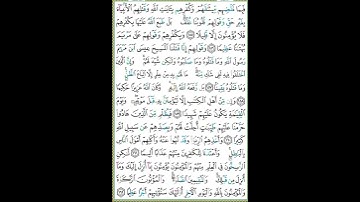 فَبِمَا نَقْضِهِم مِّيثَٰقَهُمْ وَكُفْرِهِم بِـَٔايَٰتِ ٱللَّهِ وَقَتْلِهِمُ ٱلْأَنۢبِيَآءَ
بِغَيْرِ حَقٍّ وَقَوْلِهِمْ قُلُوبُنَا غُلْفٌۢ بَلْ طَبَعَ ٱللَّهُ عَلَيْهَا بِكُفْرِهِمْ
فَلَا يُؤْمِنُونَ إِلَّا قَلِيلًا ١٥٥ وَبِكُفْرِهِمْ وَقَوْلِهِمْ عَلَىٰ مَرْيَمَ
بُهْتَٰنًا عَظِيمًا ١٥٦ وَقَوْلِهِمْ إِنَّا قَتَلْنَا ٱلْمَسِيحَ عِيسَى ٱبْنَ مَرْيَمَ
رَسُولَ ٱللَّهِ وَمَا قَتَلُوهُ وَمَا صَلَبُوهُ وَلَٰكِن شُبِّهَ لَهُمْ وَإِنَّ ٱلَّذِينَ
ٱخْتَلَفُوا۟ فِيهِ لَفِى شَكٍّ مِّنْهُ مَا لَهُم بِهِۦ مِنْ عِلْمٍ إِلَّا ٱتِّبَاعَ ٱلظَّنِّ
وَمَا قَتَلُوهُ يَقِينًۢا ١٥٧ بَل رَّفَعَهُ ٱللَّهُ إِلَيْهِ وَكَانَ ٱللَّهُ عَزِيزًا حَكِيمًا
١٥٨ وَإِن مِّنْ أَهْلِ ٱلْكِتَٰبِ إِلَّا لَيُؤْمِنَنَّ بِهِۦ قَبْلَ مَوْتِهِۦ وَيَوْمَ
ٱلْقِيَٰمَةِ يَكُونُ عَلَيْهِمْ شَهِيدًا ١٥٩ فَبِظُلْمٍ مِّنَ ٱلَّذِينَ هَادُوا۟
حَرَّمْنَا عَلَيْهِمْ طَيِّبَٰتٍ أُحِلَّتْ لَهُمْ وَبِصَدِّهِمْ عَن سَبِيلِ ٱللَّهِ
كَثِيرًا ١٦٠ وَأَخْذِهِمُ ٱلرِّبَوٰا۟ وَقَدْ نُهُوا۟ عَنْهُ وَأَكْلِهِمْ أَمْوَٰلَ ٱلنَّاسِ
بِٱلْبَٰطِلِ وَأَعْتَدْنَا لِلْكَٰفِرِينَ مِنْهُمْ عَذَابًا أَلِيمًا ١٦١ لَّٰكِنِ
ٱلرَّٰسِخُونَ فِى ٱلْعِلْمِ مِنْهُمْ وَٱلْمُؤْمِنُونَ يُؤْمِنُونَ بِمَآ أُنزِلَ إِلَيْكَ وَمَآ
أُنزِلَ مِن قَبْلِكَ وَٱلْمُقِيمِينَ ٱلصَّلَوٰةَ وَٱلْمُؤْتُونَ ٱلزَّكَوٰةَ
وَٱلْمُؤْمِنُونَ بِٱللَّهِ وَٱلْيَوْمِ ٱلْءَاخِرِ أُو۟لَٰٓئِكَ سَنُؤْتِيهِمْ أَجْرًا عَظِيمًا ١٦٢